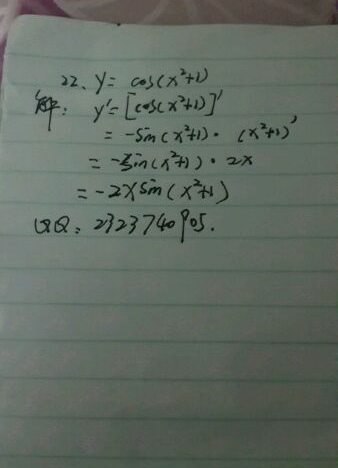 22. y = cos(x²+1)
解: y' = [cos(x²+1)]'
= -sin(x²+1)·(x²+1)'
= -sin(x²+1)·2x
= -2xsin(x²+1)
QQ: 2323740905.